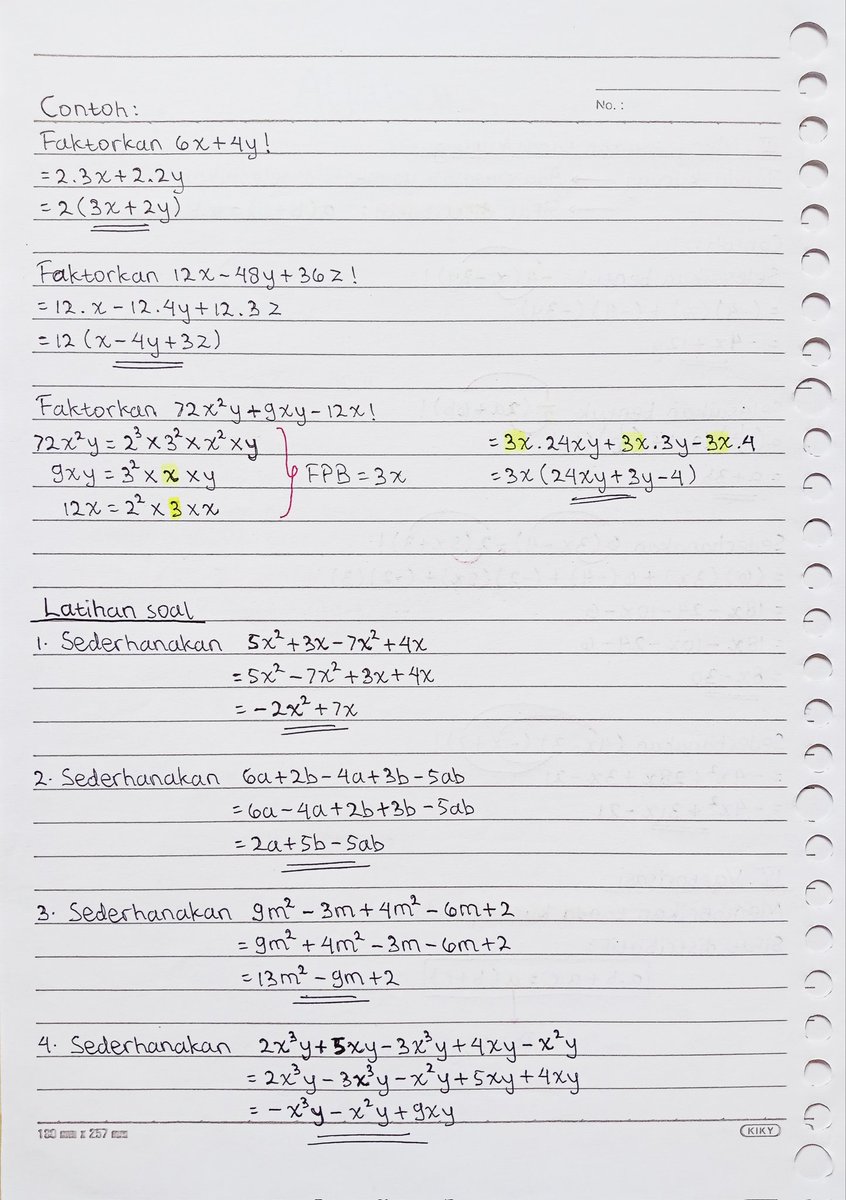 No. :
Contoh:
Faktorkan 6x+4y!
=2.3x+2.2y
=2(3x+2y)
Faktorkan 12x-48y+36z!
=12.x-12.4y+12.3z
=12(x-4y+3z)
Faktorkan 72x²y+9xy-12x!
72x²y=2³×3²×x²×y
9xy=3²×x×y
12x=2²×3×x
FPB=3x
=3x.24xy+3x.3y-3x.4
=3x(24xy+3y-4)
Latihan soal
1. Sederhanakan 5x²+3x-7x²+4x
=5x²-7x²+3x+4x
=-2x²+7x
2. Sederhanakan 6a+2b-4a+3b-5ab
=6a-4a+2b+3b-5ab
=2a+5b-5ab
3. Sederhanakan 9m²-3m+4m²-6m+2
=9m²+4m²-3m-6m+2
=13m²-9m+2
4. Sederhanakan 2x³y+5xy-3x³y+4xy-x²y
=2x³y-3x³y-x²y+5xy+4xy
=-x³y-x²y+9xy
180 mm x 257 mm
KIKY